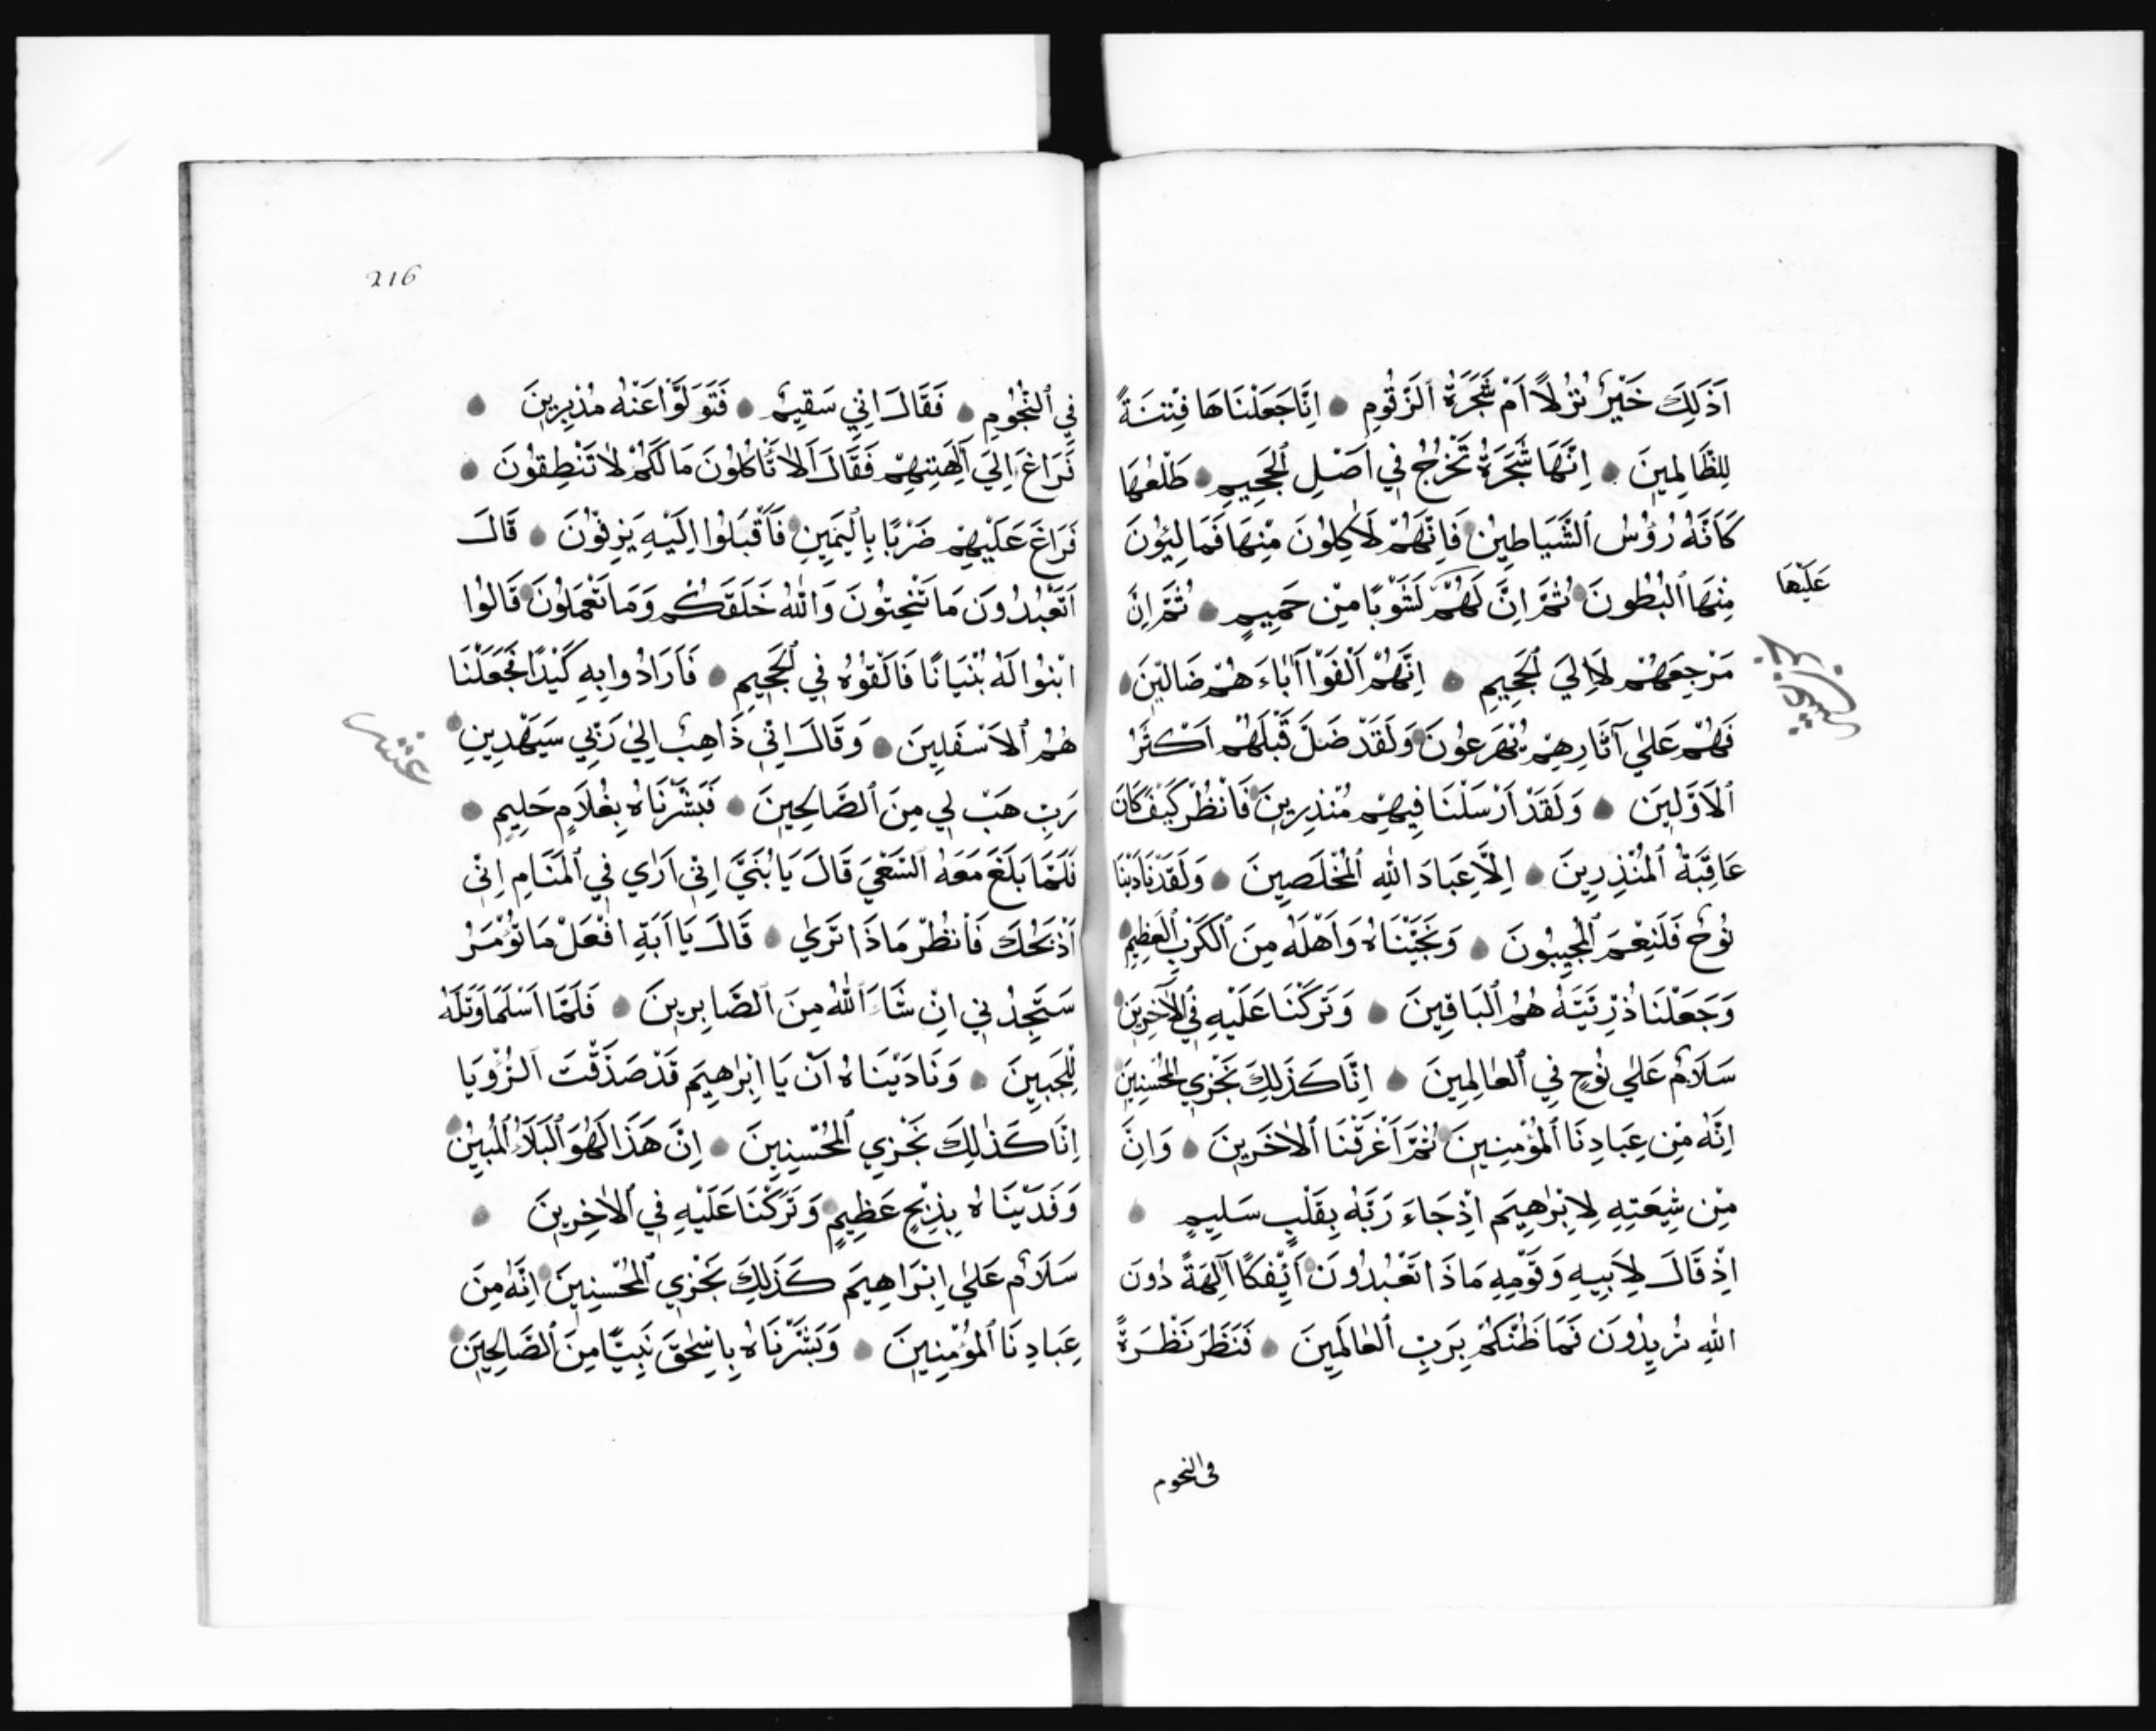 اَذَلِكَ خَيْرٌ نُزُلاً اَمْ شَجَرَةُ الزَّقُّومِ اِنَّا جَعَلْنَاهَا فِتْنَةً
لِلظَّالِمِينَ اِنَّهَا شَجَرَةٌ تَخْرُجُ فِي اَصْلِ الْجَحِيمِ طَلْعُهَا
كَاَنَّهُ رُؤُسُ الشَّيَاطِينِ فَاِنَّهُمْ لَاٰكِلُونَ مِنْهَا فَمَالِئُونَ
مِنْهَا الْبُطُونَ ثُمَّ اِنَّ لَهُمْ لَشَوْبًا مِنْ حَمِيمٍ ثُمَّ اِنَّ
عَلَيْهَا
مَرْجِعَهُمْ لَاِلَي الْجَحِيمِ اِنَّهُمْ اَلْفَوْا اٰبَاءَهُمْ ضَالِّينَ
فَهُمْ عَلٰي آثَارِهِمْ يُهْرَعُونَ وَلَقَدْ ضَلَّ قَبْلَهُمْ اَكْثَرُ
الْاَوَّلِينَ وَلَقَدْ اَرْسَلْنَا فِيهِمْ مُنْذِرِينَ فَانْظُرْ كَيْفَ كَانَ
عَاقِبَةُ الْمُنْذِرِينَ اِلَّا عِبَادَ اللهِ الْمُخْلَصِينَ وَلَقَدْ نَادَيْنَا
نُوحٌ فَلَنِعْمَ الْمُجِيبُونَ وَنَجَّيْنَاهُ وَاَهْلَهُ مِنَ الْكَرْبِ الْعَظِيمِ
وَجَعَلْنَا ذُرِّيَّتَهُ هُمُ الْبَاقِينَ وَتَرَكْنَا عَلَيْهِ فِي الْآخِرِينَ
سَلَامٌ عَلٰي نُوحٍ فِي الْعَالَمِينَ اِنَّا كَذٰلِكَ نَجْزِي الْمُحْسِنِينَ
اِنَّهُ مِنْ عِبَادِنَا الْمُؤْمِنِينَ ثُمَّ اَغْرَقْنَا الْاٰخَرِينَ وَاِنَّ
مِنْ شِيعَتِهِ لَاِبْرٰهِيمَ اِذْ جَاءَ رَبَّهُ بِقَلْبٍ سَلِيمٍ
اِذْ قَالَ لِاَبِيهِ وَقَوْمِهِ مَاذَا تَعْبُدُونَ اَئِفْكًا آلِهَةً دُونَ
اللهِ تُرِيدُونَ فَمَا ظَنُّكُمْ بِرَبِّ الْعَالَمِينَ فَنَظَرَ نَظْرَةً
في النجوم
216
فِي النُّجُومِ فَقَالَ اِنِّي سَقِيمٌ فَتَوَلَّوْا عَنْهُ مُدْبِرِينَ
فَرَاغَ اِلَي آلِهَتِهِمْ فَقَالَ اَلَا تَأْكُلُونَ مَالَكُمْ لَا تَنْطِقُونَ
فَرَاغَ عَلَيْهِمْ ضَرْبًا بِالْيَمِينِ فَاَقْبَلُوا اِلَيْهِ يَزِفُّونَ قَالَ
اَتَعْبُدُونَ مَا تَنْحِتُونَ وَاللهُ خَلَقَكُمْ وَمَا تَعْمَلُونَ قَالُوا
ابْنُوا لَهُ بُنْيَانًا فَاَلْقُوهُ فِي الْجَحِيمِ فَاَرَادُوا بِهِ كَيْدًا فَجَعَلْنَا
هُمُ الْاَسْفَلِينَ وَقَالَ اِنِّي ذَاهِبٌ اِلٰي رَبِّي سَيَهْدِينِ
رَبِّ هَبْ لِي مِنَ الصَّالِحِينَ فَبَشَّرْنَاهُ بِغُلَامٍ حَلِيمٍ
فَلَمَّا بَلَغَ مَعَهُ السَّعْيَ قَالَ يَا بُنَيَّ اِنِّي اَرٰي فِي الْمَنَامِ اِنِّي
اَذْبَحُكَ فَانْظُرْ مَاذَا تَرٰي قَالَ يَا اَبَتِ افْعَلْ مَا تُؤْمَرُ
سَتَجِدُنِي اِنْ شَاءَ اللهُ مِنَ الصَّابِرِينَ فَلَمَّا اَسْلَمَا وَتَلَّهُ
لِلْجَبِينِ وَنَادَيْنَاهُ اَنْ يَا اِبْرٰهِيمُ قَدْ صَدَّقْتَ الرُّؤْيَا
اِنَّا كَذٰلِكَ نَجْزِي الْمُحْسِنِينَ اِنَّ هَذَا لَهُوَ الْبَلَاءُ الْمُبِينُ
وَفَدَيْنَاهُ بِذِبْحٍ عَظِيمٍ وَتَرَكْنَا عَلَيْهِ فِي الْاٰخِرِينَ
سَلَامٌ عَلٰي اِبْرَاهِيمَ كَذَلِكَ نَجْزِي الْمُحْسِنِينَ اِنَّهُ مِنَ
عِبَادِنَا الْمُؤْمِنِينَ وَبَشَّرْنَاهُ بِاِسْحٰقَ نَبِيًّا مِنَ الصَّالِحِينَ
عشر